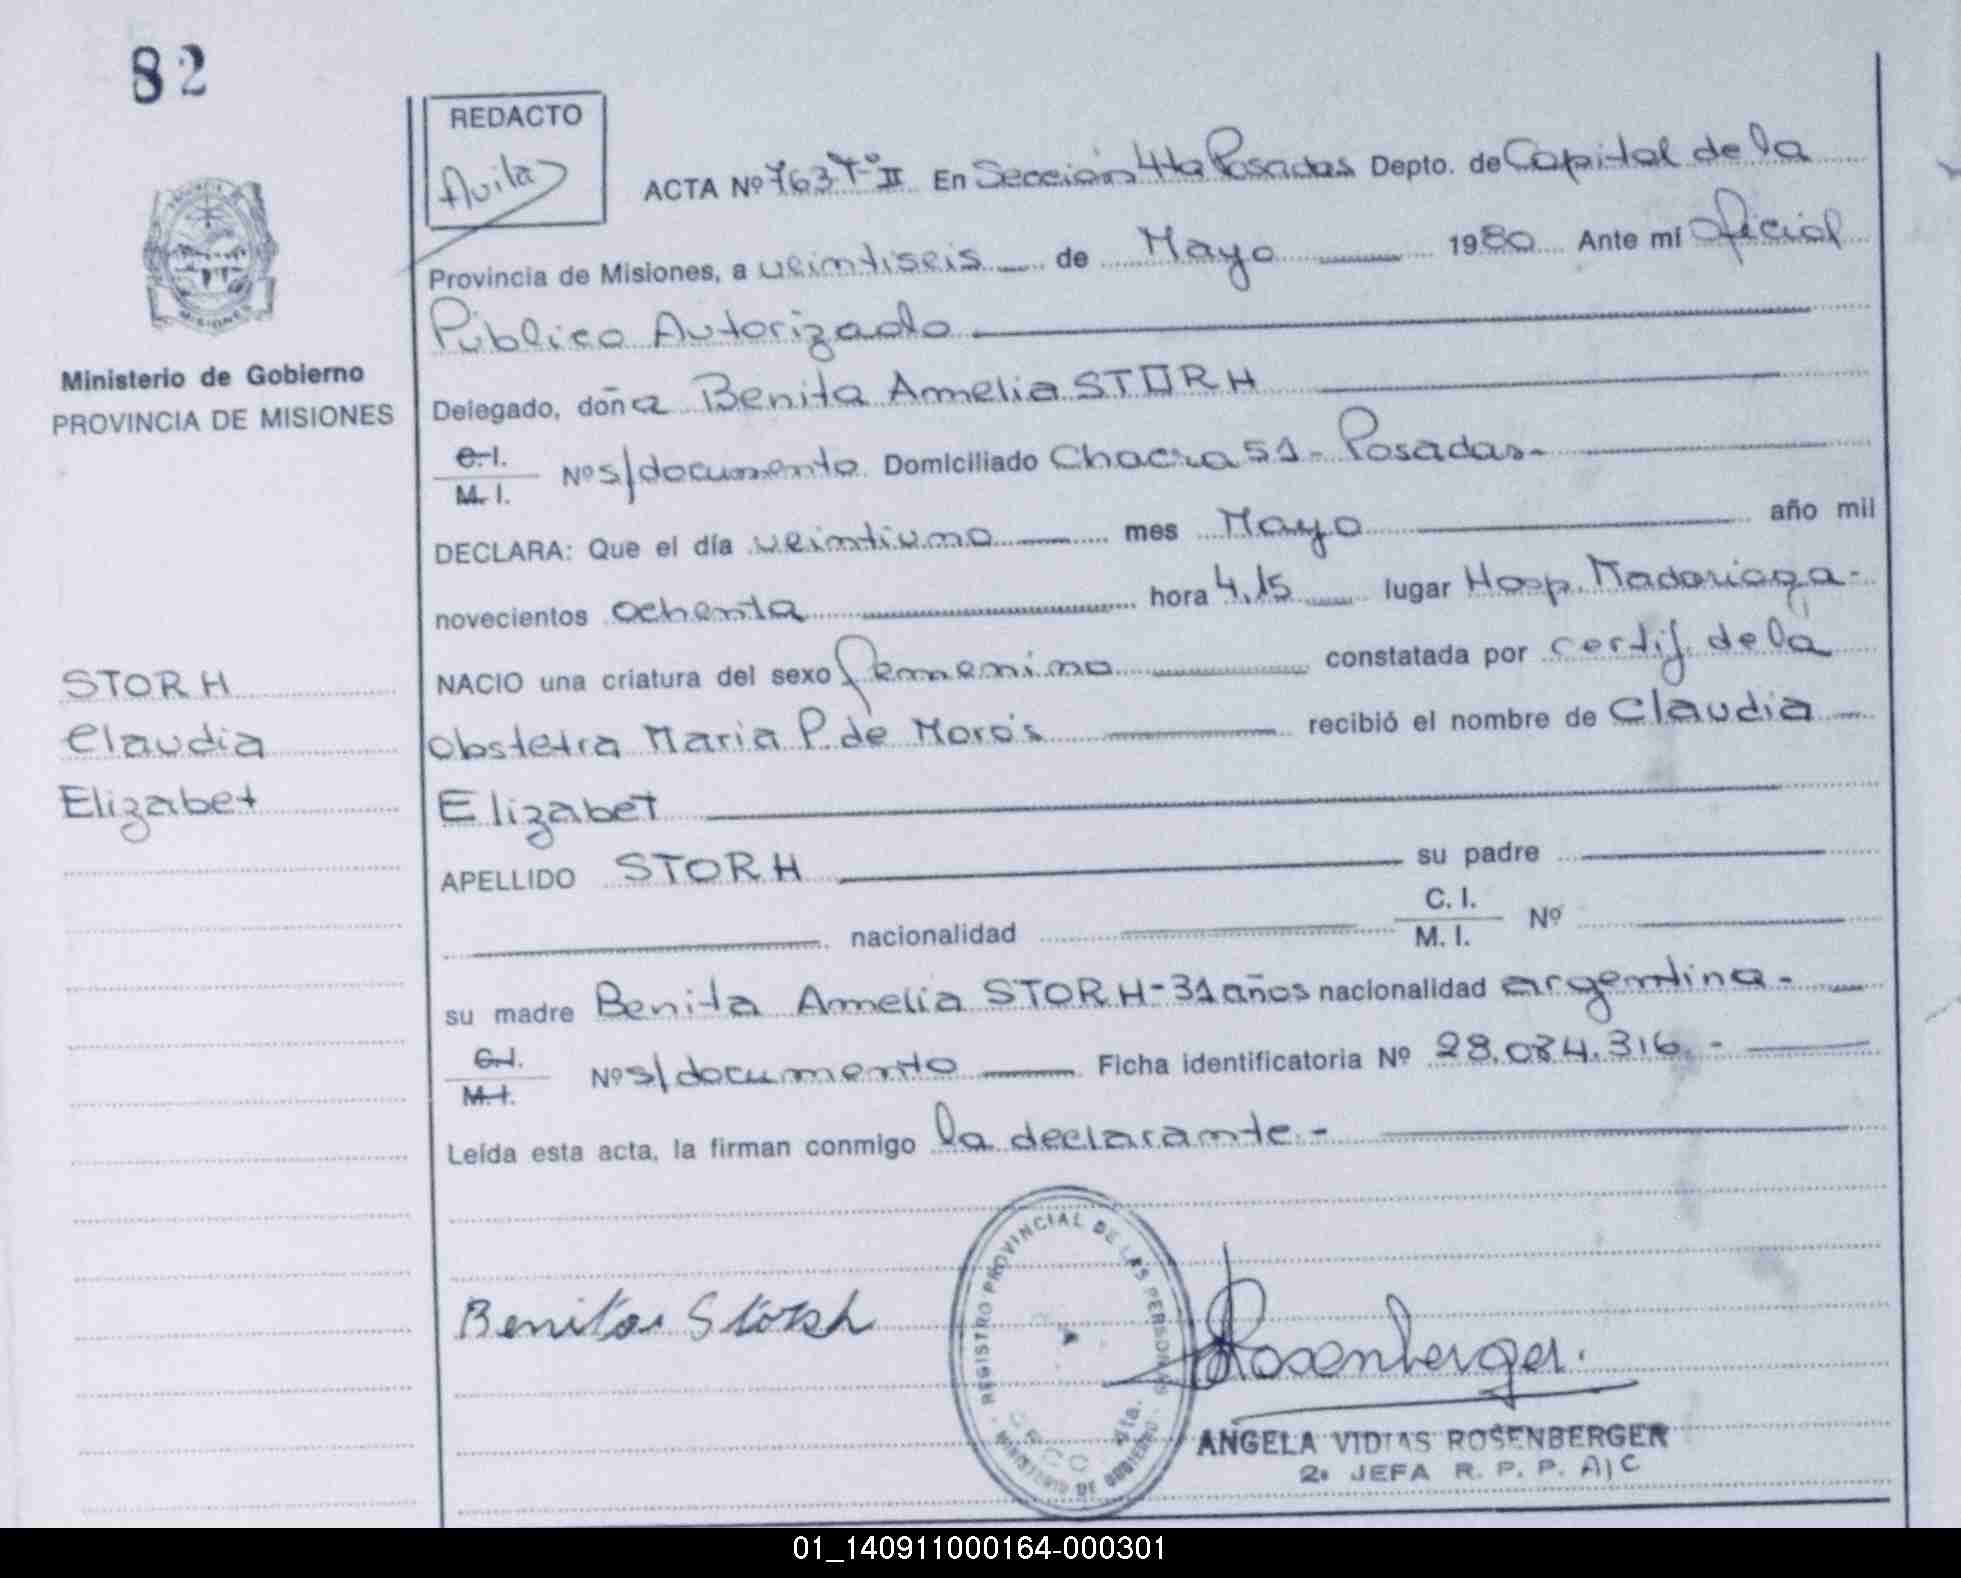 82
REDACTO
Avila
ACTA Nº 763 Tº II En Sección 4ta Posadas Depto. de Capital de la
Provincia de Misiones, a veintiseis de Mayo 1980 Ante mí Oficial
Público Autorizado
Delegado, doña Benita Amelia STORH
C. I.
M. I. Nº s/documento Domiciliado Chacra 51 - Posadas-
DECLARA: Que el día veintiuno mes Mayo año mil
novecientos ochenta hora 4,15 lugar Hosp. Madariaga-
NACIO una criatura del sexo femenino constatada por certif. de la
obstetra Maria P. de Moro's recibió el nombre de Claudia
Elizabet
APELLIDO STORH su padre
nacionalidad C. I.
M. I. Nº
su madre Benita Amelia STORH-31 años nacionalidad argentina-
C. I.
M. I. Nº s/documento Ficha identificatoria Nº 28.084.316.-
Leída esta acta, la firman conmigo la declarante.-
MISIONES
Ministerio de Gobierno
PROVINCIA DE MISIONES
STORH
Claudia
Elizabet
Benita Storh
REGISTRO PROVINCIAL DE LAS PERSONAS
MINISTERIO DE GOBIERNO
4ta.
Rosenberger
ANGELA VIDIAS ROSENBERGER
2ª JEFA R. P. P. A/C
01_140911000164-000301